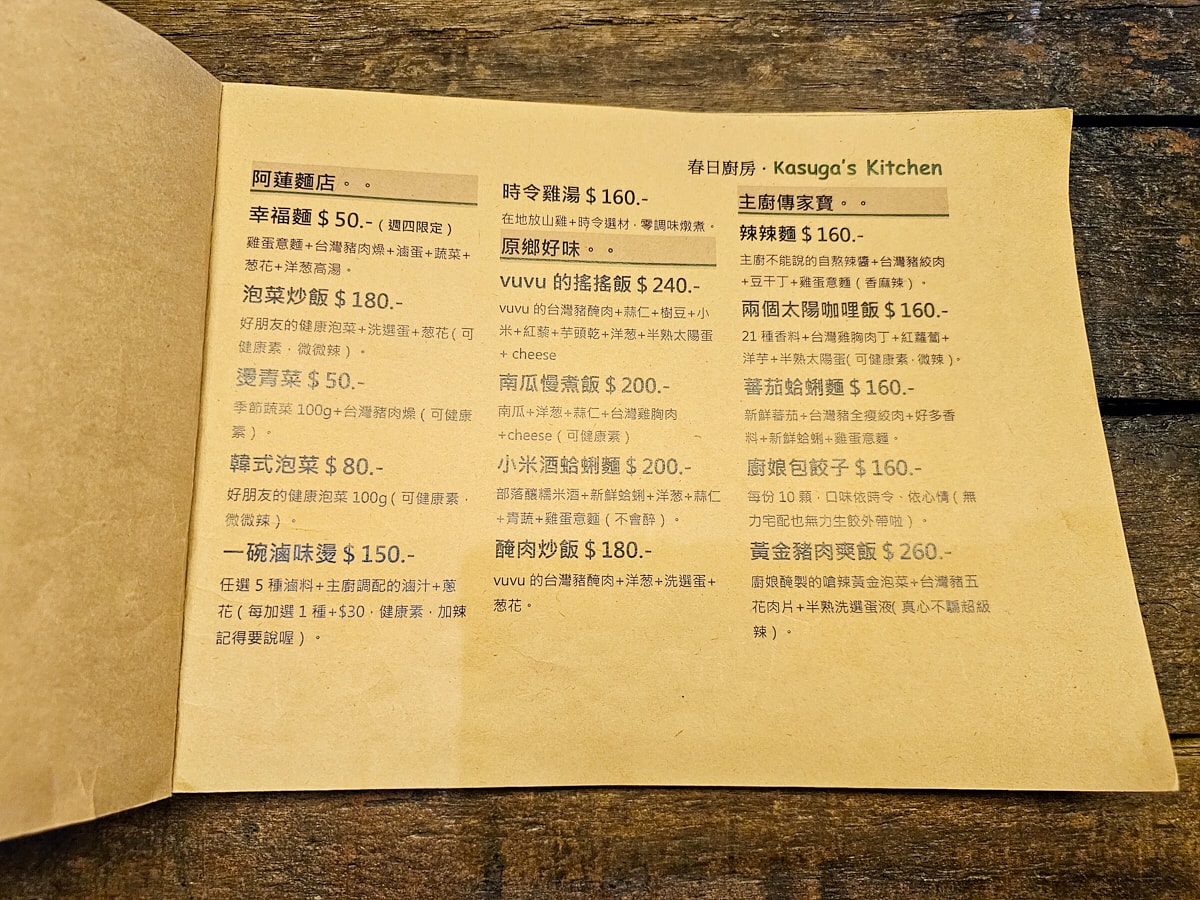 春日廚房·Kasuga's Kitchen
阿蓮麵店。。
幸福麵 $ 50.-(週四限定)
雞蛋意麵+台灣豬肉燥+滷蛋+蔬菜+
葱花+洋葱高湯。
泡菜炒飯 $ 180.-
好朋友的健康泡菜+洗選蛋+葱花(可
健康素，微微辣)。
燙青菜 $ 50.-
季節蔬菜 100g+台灣豬肉燥(可健康
素)。
韓式泡菜 $ 80.-
好朋友的健康泡菜 100g(可健康素，
微微辣)。
一碗滷味燙 $ 150.-
任選 5 種滷料+主廚調配的滷汁+蔥
花(每加選 1 種+$30，健康素，加辣
記得要說喔)。
時令雞湯 $ 160.-
在地放山雞+時令選材，零調味燉煮。
原鄉好味。。
vuvu 的搖搖飯 $ 240.-
vuvu 的台灣豬醃肉+蒜仁+樹豆+小
米+紅藜+芋頭乾+洋葱+半熟太陽蛋
+ cheese
南瓜慢煮飯 $ 200.-
南瓜+洋葱+蒜仁+台灣雞胸肉
+cheese(可健康素)
小米酒蛤蜊麵 $ 200.-
部落釀糯米酒+新鮮蛤蜊+洋葱+蒜仁
+青蔬+雞蛋意麵(不會醉)。
醃肉炒飯 $ 180.-
vuvu 的台灣豬醃肉+洋葱+洗選蛋+
葱花。
主廚傳家寶。。
辣辣麵 $ 160.-
主廚不能說的自熬辣醬+台灣豬絞肉
+豆干丁+雞蛋意麵(香麻辣)。
兩個太陽咖哩飯 $ 160.-
21 種香料+台灣雞胸肉丁+紅蘿蔔+
洋芋+半熟太陽蛋(可健康素，微辣)。
蕃茄蛤蜊麵 $ 160.-
新鮮蕃茄+台灣豬全瘦絞肉+好多香
料+新鮮蛤蜊+雞蛋意麵。
廚娘包餃子 $ 160.-
每份 10 顆，口味依時令，依心情(無
力宅配也無力生餃外帶啦)。
黃金豬肉爽飯 $ 260.-
廚娘醃製的嗆辣黃金泡菜+台灣豬五
花肉片+半熟洗選蛋液(真心不騙超級
辣)。